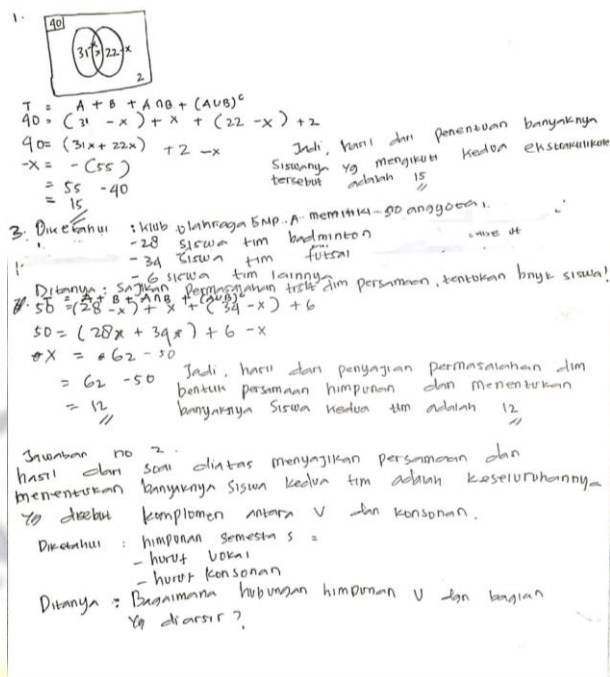 1.
40
31-x x 22-x
2
T = A + B + A∩B + (A∪B)ᶜ
40 = (31 - x) + x + (22 - x) + 2
40 = (31x + 22x) + 2 - x
-x = -(55)
= 55 - 40
= 15
Jadi, hasil dari penentuan banyaknya
Siswanya yg mengikuti kedua ekstrakulikuler
tersebut adalah 15
3. Diketahui : klub olahraga SMP. A memiliki 50 anggota.
- 28 siswa tim badminton
- 34 siswa tim futsal
- 6 siswa tim lainnya
Ditanya : Sajikan permasalahan trsbt dlm persamaan, tentukan bnyk siswa!
T = A + B + A∩B + (A∪B)ᶜ
50 = (28 - x) + x + (34 - x) + 6
50 = (28x + 34x) + 6 - x
X = 62 - 50
= 62 - 50
= 12
Jadi, hasil dan penyajian permasalahan dlm
bentuk persamaan himpunan dan menentukan
banyaknya siswa kedua tim adalah 12
Jawaban no 2.
hasil dari soal diatas menyajikan persamaan dan
menentukan banyaknya siswa kedua tim adalah keseluruhannya
Yg disebut komplomen antara V dan konsonan.
Diketahui : himpunan semesta S =
- huruf vokal
- huruf konsonan
Ditanya : Bagaimana hubungan himpunan V dan bagian
Yg diarsir ?